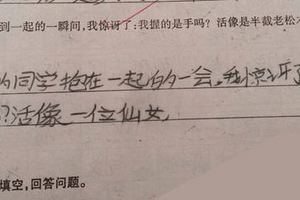 到一起的一瞬间,我惊讶了:我握的是手吗?活像是半截老松
的同学抢在一起的一会,我惊讶了
?活像一位仙女,
填空,回答问题。